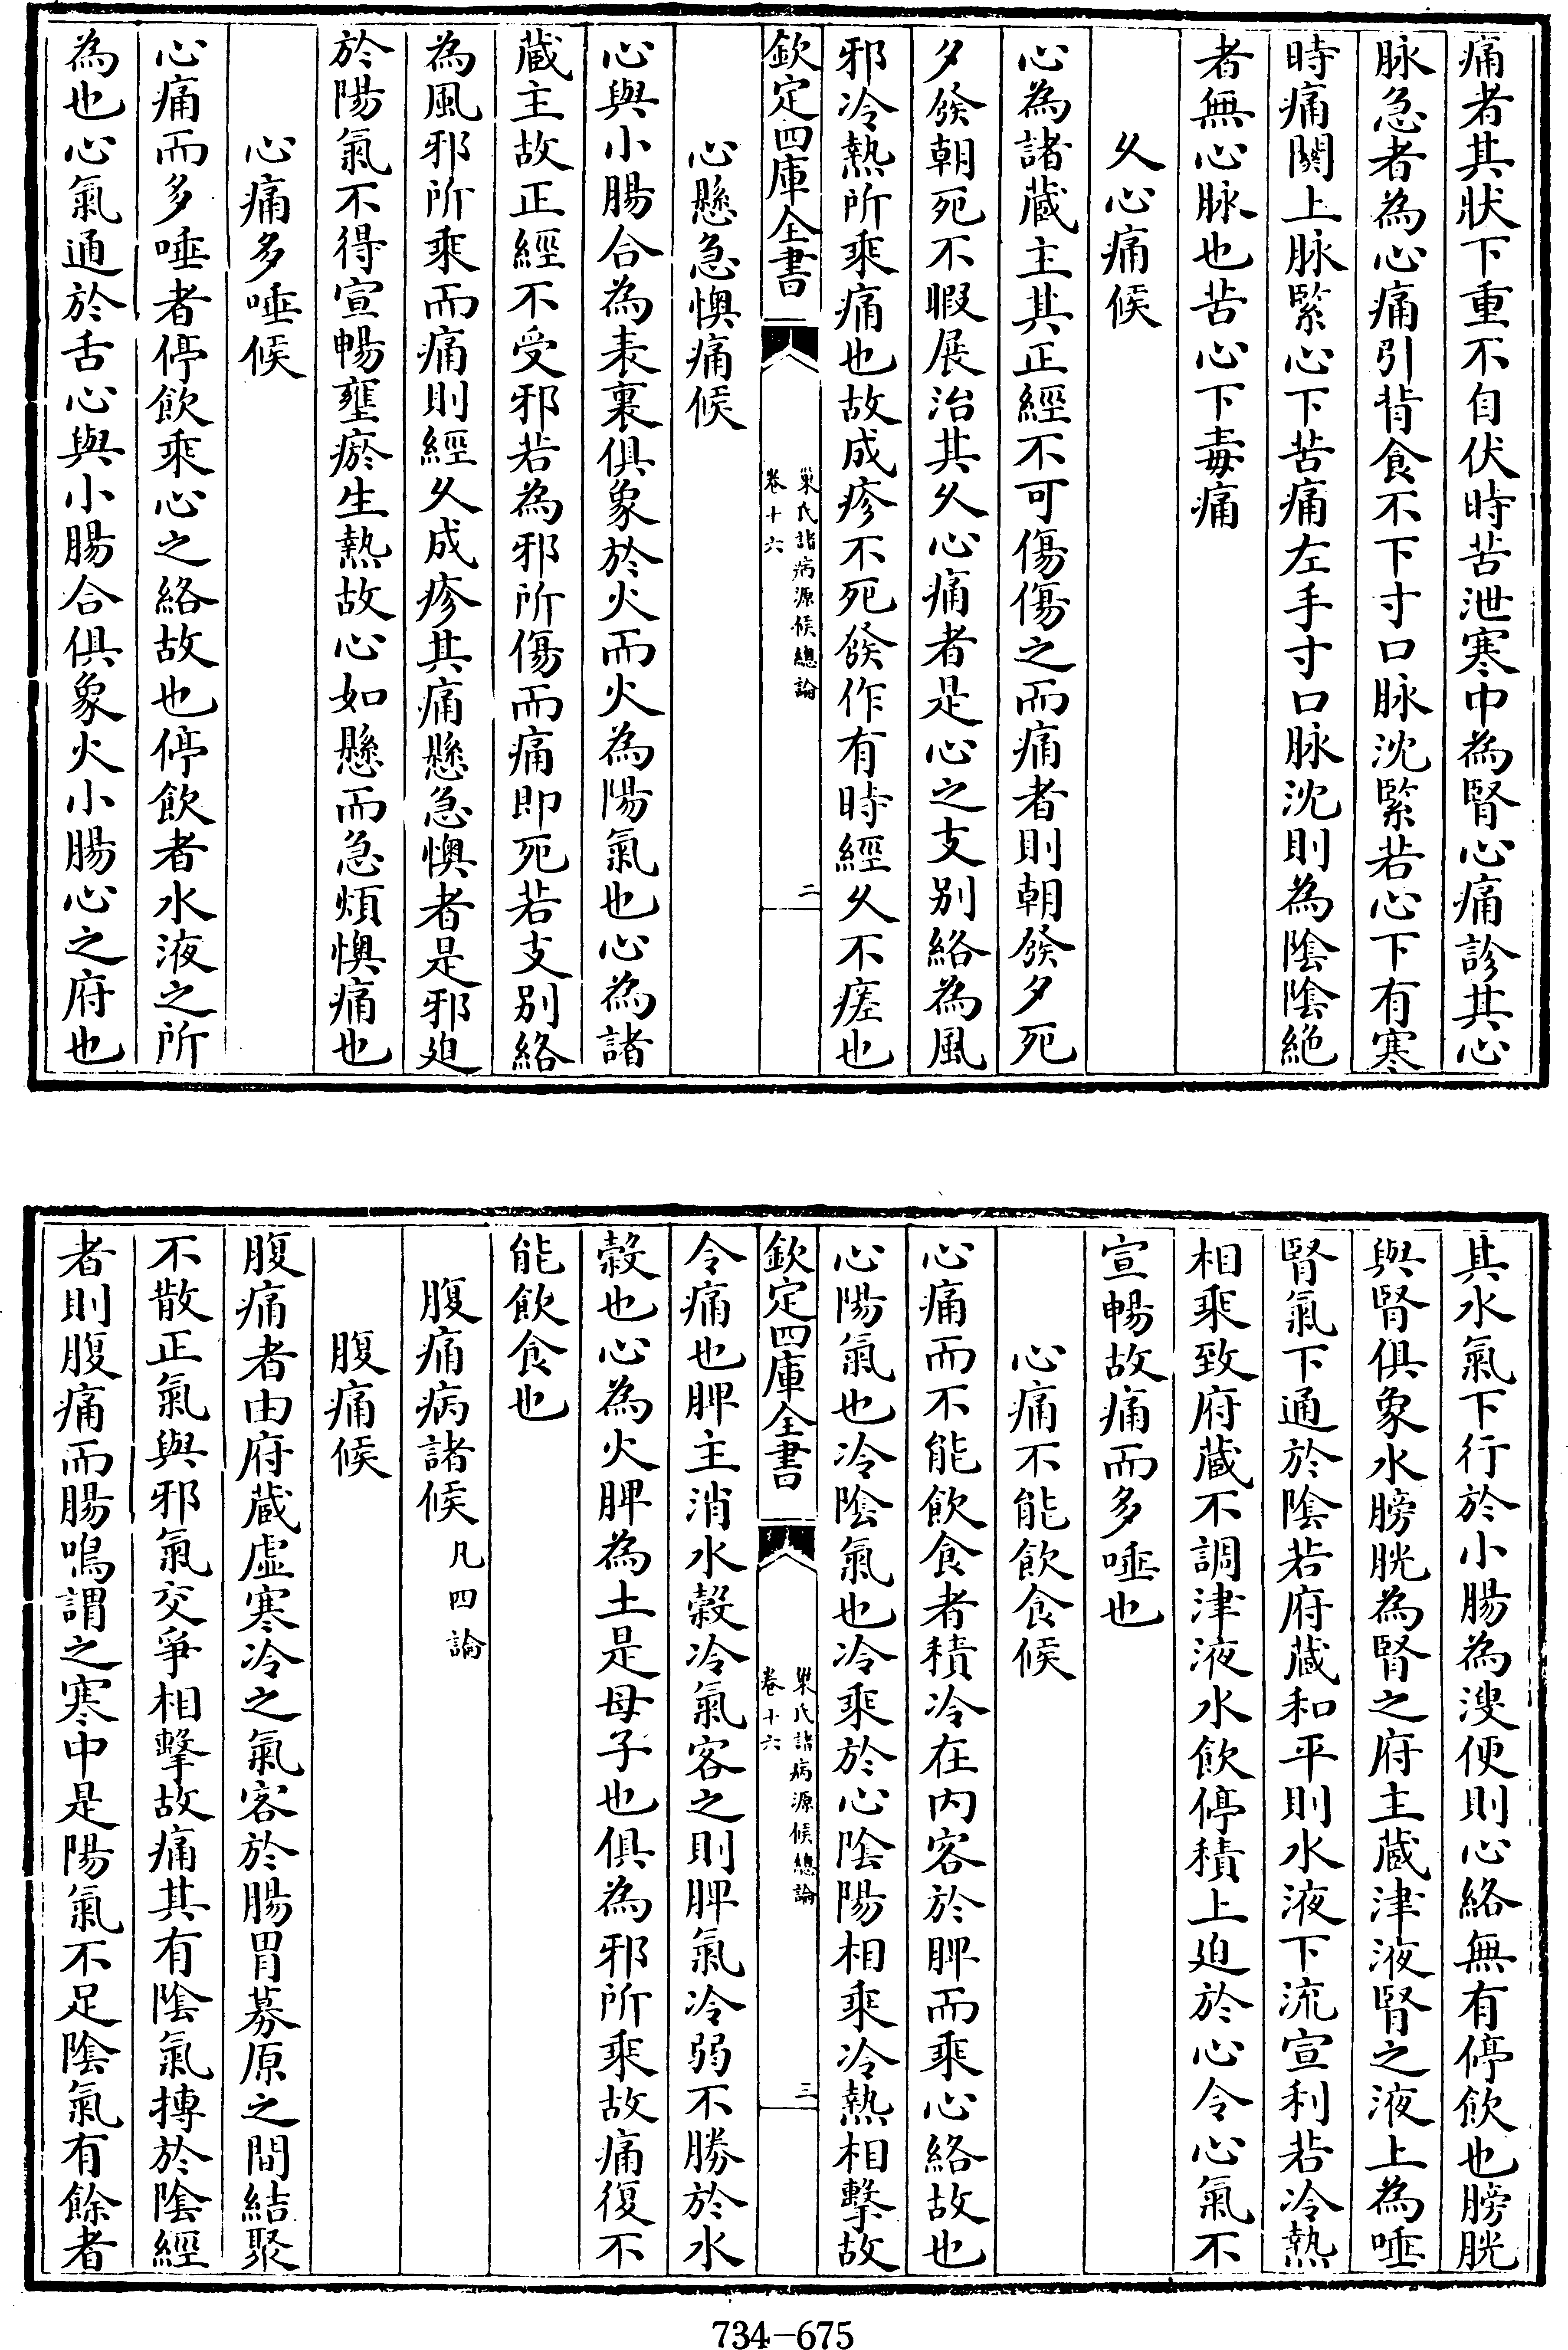 痛者其狀下重不自伏時苦泄寒中為腎心痛診其心
脉急者為心痛引背食不下寸口脉沈緊若心下有寒
時痛關上脉緊心下苦痛左手寸口脉沈則為陰陰絶
者無心脉也苦心下毒痛
乆心痛候
心為諸藏主其正經不可傷傷之而痛者則朝發夕死
夕發朝死不暇展治其乆心痛者是心之支别絡為風
邪冷熱所乘痛也故成疹不死發作有時經乆不瘥也
欽定四庫全書
巢氏諸病源候總論
卷十六
二
心懸急懊痛候
心與小腸合為表裏俱象於火而火為陽氣也心為諸
藏主故正經不受邪若為邪所傷而痛即死若支别絡
為風邪所乘而痛則經乆成疹其痛懸急懊者是邪迫
於陽氣不得宣暢壅瘀生熱故心如懸而急煩懊痛也
心痛多唾候
心痛而多唾者停飲乘心之絡故也停飲者水液之所
為也心氣通於舌心與小腸合俱象火小腸心之府也
其水氣下行於小腸為溲便則心絡無有停飲也膀胱
與腎俱象水膀胱為腎之府主藏津液腎之液上為唾
腎氣下通於陰若府藏和平則水液下流宣利若冷熱
相乘致府藏不調津液水飲停積上迫於心令心氣不
宣暢故痛而多唾也
心痛不能飲食候
心痛而不能飲食者積冷在内客於脾而乘心絡故也
心陽氣也冷陰氣也冷乘於心陰陽相乘冷熱相擊故
欽定四庫全書
巢氏諸病源候總論
卷十六
三
令痛也脾主消水穀冷氣客之則脾氣冷弱不勝於水
穀也心為火脾為土是母子也俱為邪所乘故痛復不
能飲食也
腹痛病諸候 凡四論
腹痛候
腹痛者由府藏虚寒冷之氣客於腸胃募原之間結聚
不散正氣與邪氣交爭相擊故痛其有陰氣搏於陰經
者則腹痛而腸鳴謂之寒中是陽氣不足陰氣有餘者
734-675